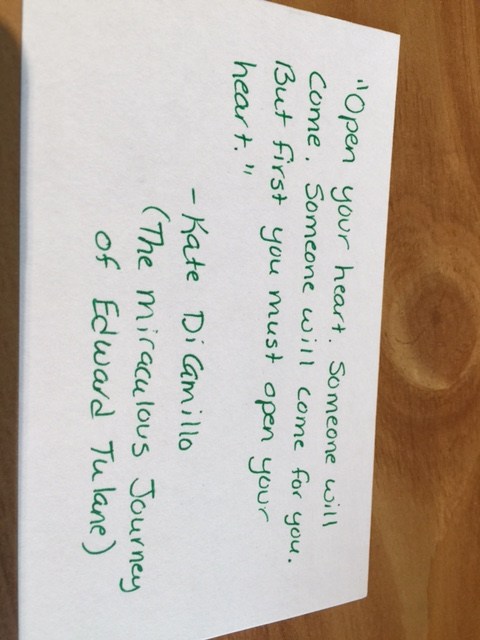 "Open your heart. Someone will
come. Someone will come for you.
But first you must open your
heart."
- Kate DiCamillo
(The Miraculous Journey
of Edward Tulane)